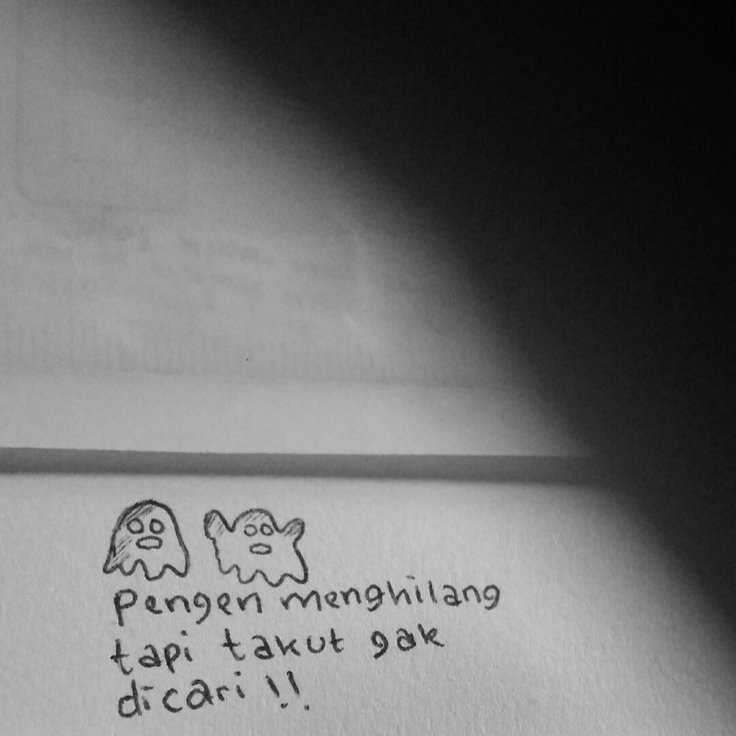 Pengen menghilang
tapi takut gak
dicari !!